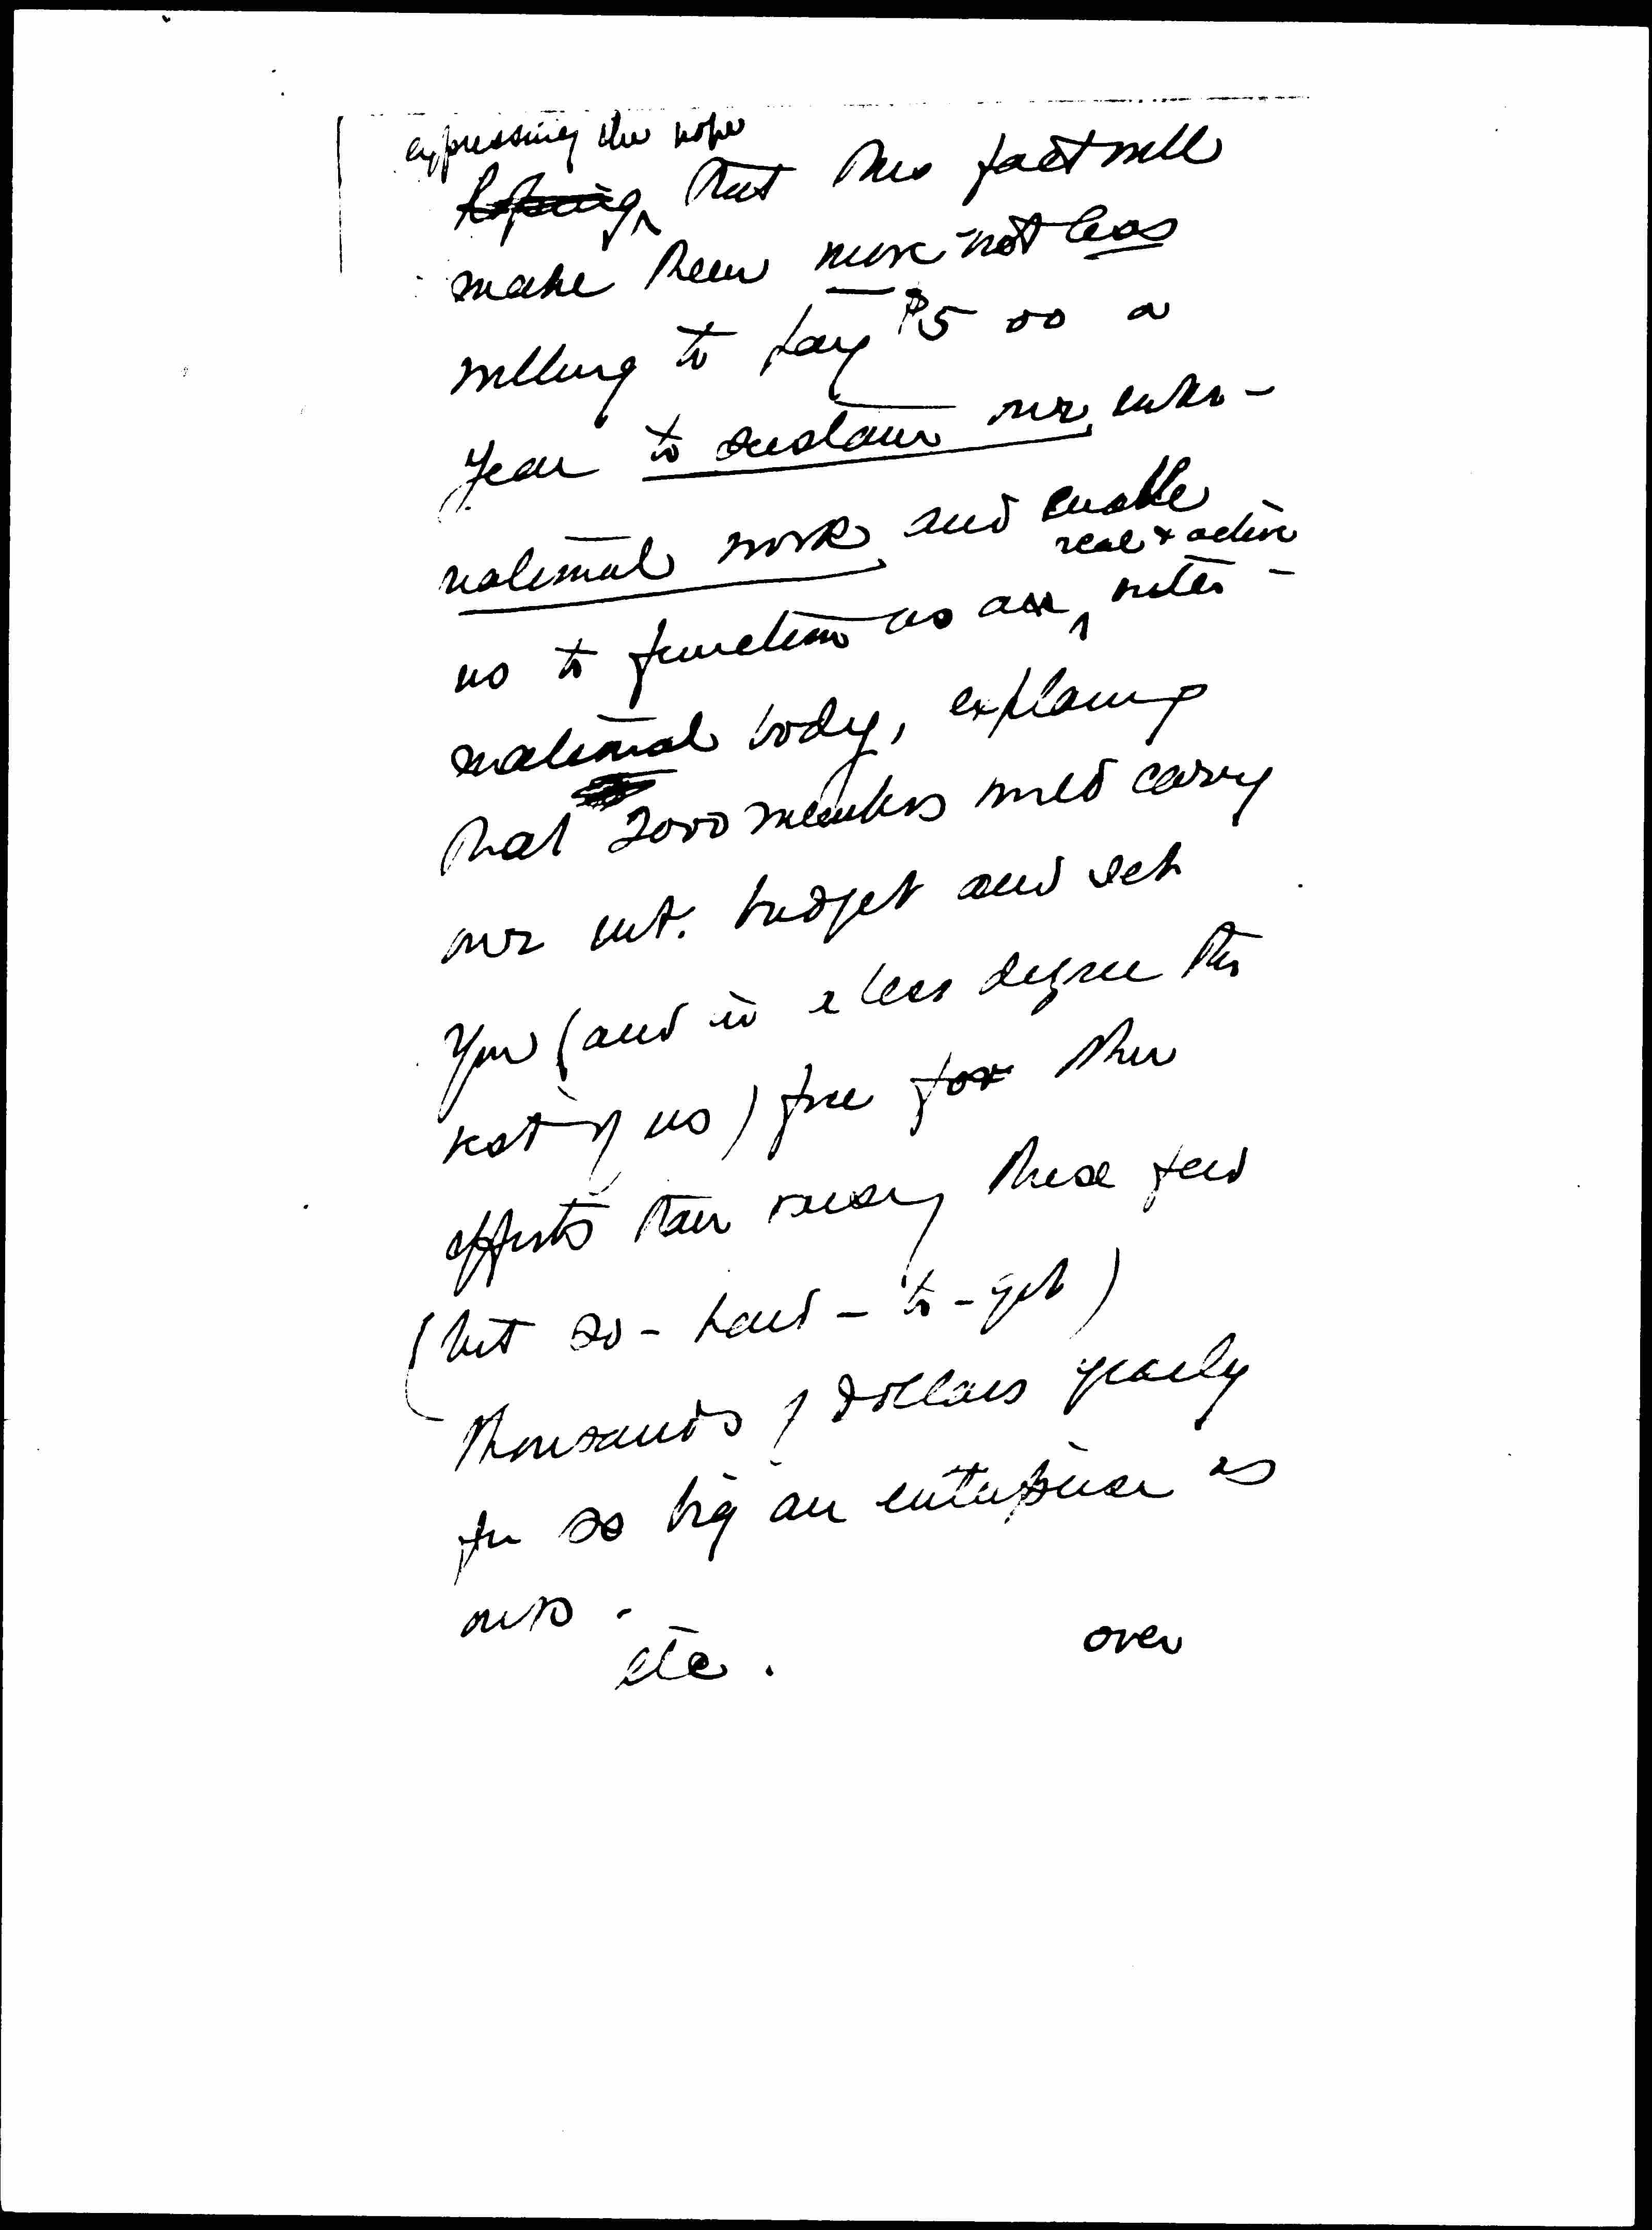 expressing the hope
Hoping that this fact will
make them more - not less
willing to pay $5 00 a
year to sustain our inter-
national work and enable
real & active
us to function as an inter-
national body, explaining
that 2000 members would carry
our int. budget and set
you (and in a less degree the
rest of us) free for other
efforts than raising these few
(but so - hard - to - get)
thousands of dollars yearly
for so big an enterprise as
ours.
etc. over